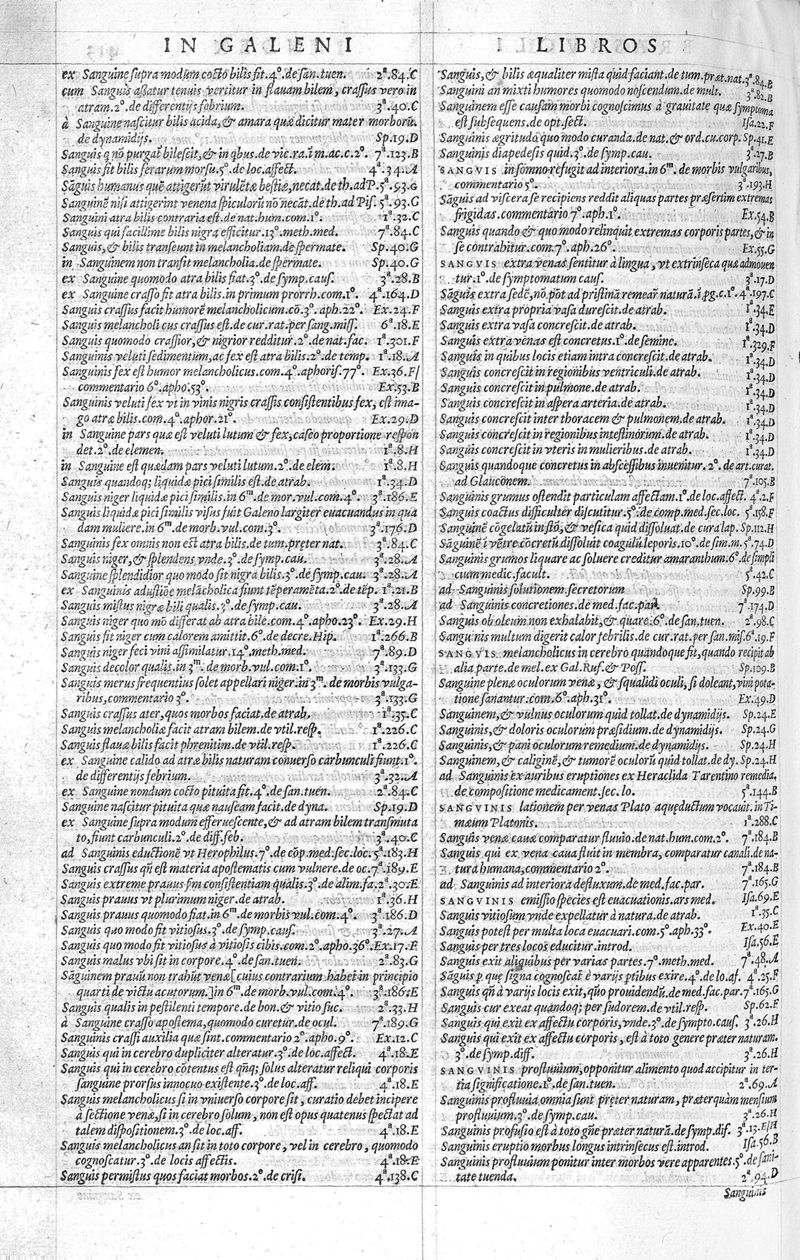 IN GALENI LIBROS
ex Sanguine supra modum cocto bilis fit.4º.de san.tuen. 2ª.84.C
cum Sanguis assatur tenuis vertitur in flauam bilem, crassus vero in
atram.2º.de differentijs febrium. 3ª.40.C
à Sanguine nascitur bilis acida,& amara quæ dicitur mater morborũ.
de dynamidijs. Sp.19.D
Sanguis q nõ purgat bilescit,& in qbus.de vic.ra.ĩ m.ac.c.2º. 7ª.123.B
Sanguis fit bilis ferarum morsu.5º.de loc.affect. 4ª.34.A
Sãguis humanus quẽ attigerũt virulẽtæ bestiæ,necat.de th.ad P. 5ª.93.G
Sanguinẽ nisi attigerint venena spiculorũ nõ necãt.de th.ad Pis. 5ª.93.G
Sanguini atra bilis contraria est.de nat.hum.com.1º. 1ª.32.C
Sanguis qui facillime bilis nigra efficitur.13º.meth.med. 7ª.84.C
Sanguis,& bilis transeunt in melancholiam.de spermate. Sp.40.G
in Sanguinem non transit melancholia.de spermate. Sp.40.G
ex Sanguine quomodo atra bilis fiat.3º.de symp.cauf. 3ª.28.B
ex Sanguine crasso fit atra bilis.in primum prorrh.com.1º. 4ª.164.D
Sanguis crassus facit humorẽ melancholicum.cõ.3º.aph.22º. Ex.24.F
Sanguis melancholicus crassus est.de cur.rat.per sang.miss. 6ª.18.E
Sanguis quomodo crassior,& nigrior redditur.2º.de nat.fac. 1ª.301.F
Sanguinis veluti sedimentum,ac fex est atra bilis.2º.de temp. 1ª.18.A
Sanguinis fex est humor melancholicus.com.4º.aphoris.77º. Ex.36.F
commentario 6º.apho.53º. Ex.53.B
Sanguinis veluti fex vt in vinis nigris crassis consistentibus fex, est ima-
go atræ bilis.com.4º.aphor.21º. Ex.29.D
in Sanguine pars quæ est veluti lutum & fex,caseo proportione respon
det.2º.de elemen. 1ª.8.H
in Sanguine est quædam pars veluti lutum.2º.de elem. 1ª.8.H
Sanguis quandoq; liquidæ pici similis est.de atrab. 1ª.34.D
Sanguis niger liquidæ pici similis.in 6m.de mor.vul.com.4º. 3ª.186.E
Sanguis liquidæ pici similis visus fuit Galeno largiter euacuandus in qua
dam muliere.in 6m.de morb.vul.com.3º. 3ª.176.D
Sanguinis fex omnis non est atra bilis.de tum.præter nat. 3ª.84.C
Sanguis niger,& splendens vnde.3º.de symp.cau. 3ª.28.A
Sanguine splendidior quomodo sit nigra bilis.3º.de symp.cau. 3ª.28.A
ex Sanguinis adustiõe melãcholica fiunt tẽperamẽta.2º.de tẽp. 1ª.21.B
Sanguis mistus nigræ bili qualis.3º.de symp.cau. 3ª.28.A
Sanguis niger quo mõ differat ab atra bile.com.4º.apho.23º. Ex.29.H
Sanguis fit niger cum calorem amittit.6º.de decre.Hip. 1ª.266.B
Sanguis niger feci vini assimilatur.14º.meth.med. 7ª.89.D
Sanguis decolor qualis.in 3m.de morb.vul.com.1º. 3ª.133.G
Sanguis merus frequentius solet appellari niger.in 3m.de morbis vulga-
ribus,commentario 3º. 3ª.133.G
Sanguis crassus ater,quos morbos faciat.de atrab. 1ª.35.C
Sanguis melancholiæ facit atram bilem.de vtil.resp. 1ª.226.C
Sanguis flauæ bilis facit phrenitim.de vtil.resp. 1ª.226.C
ex Sanguine calido ad atræ bilis naturam conuerso carbunculi fiunt.1º.
de differentijs febrium. 3ª.32.A
ex Sanguine nondum cocto pituita fit.4º.de san.tuen. 2ª.84.C
Sanguine nascitur pituita quæ nauseam facit.de dyna. Sp.19.D
ex Sanguine supra modum efferuescente,& ad atram bilem transmuta
to,fiunt carbunculi.2º.de diff.feb. 3ª.40.C
ad Sanguinis eductionẽ vt Herophilus.7º.de cõp.med.sec.loc. 5ª.183.H
Sanguis crassus qñ est materia apostematis cum vulnere.de oc. 7ª.189.E
Sanguis extreme prauus ſm consistentiam qualis.3º.de alim.fa. 2ª.30.E
Sanguis prauus vt plurimum niger.de atrab. 1ª.36.H
Sanguis prauus quomodo fiat.in 6m.de morbis vul.com.4º. 3ª.186.D
Sanguis quo modo fit vitiosus.3º.de symp.cauf. 3ª.27.A
Sanguis quo modo fit vitiosus à vitiosis cibis.com.2º.apho.36º. Ex.17.F
Sanguis malus vbi sit in corpore.4º.de san.tuen. 2ª.83.G
Sãguinem prauũ non trahũt venæ[cuius contrarium habet in principio
quarti de victu acutorum.]in 6m.de morb.vul.com.4º. 3ª.186.E
Sanguis qualis in pestilenti tempore.de bon.& vitio suc. 2ª.33.H
à Sanguine crasso apostema,quomodo curetur.de ocul. 7ª.189.G
Sanguinis crassi auxilia quæ sint.commentario 2º.apho.9º. Ex.12.C
Sanguis qui in cerebro dupliciter alteratur.3º.de loc.affect. 4ª.18.E
Sanguis qui in cerebro cõtentus est qñq; solus alteratur reliqui corporis
sanguine prorsus innocuo existente.3º.de loc.aff. 4ª.18.E
Sanguis melancholicus si in vniuerso corpore sit , curatio debet incipere
à sectione venæ,si in cerebro solum, non est opus quatenus spectat ad
talem dispositionem.3º.de loc.aff. 4ª.18.E
Sanguis melancholicus an sit in toto corpore , vel in cerebro , quomodo
cognoscatur.3º.de locis affectis. 4ª.18.E
Sanguis permistus quos faciat morbos.2º.de crisi. 4ª.138.C
Sanguis,& bilis æqualiter mista quid faciant.de tum.præt.nat. 3ª.84.B
Sanguini an mixti humores quomodo noscendum.de mult. 3ª.82.B
Sanguinem esse causam morbi cognoscimus à grauitate quæ symptoma
est subsequens.de opt.sect. Isa.22.F
Sanguinis ægritudo quo modo curanda.de nat.& ord.cu.corp. Sp.41.E
Sanguinis diapedesis quid.3º.de symp.cau. 3ª.27.B
SANGVIS in somno refugit ad interiora.in 6m.de morbis vulgaribus,
commentario 5º. 3ª.193.H
Sãguis ad viscera se recipiens reddit aliquas partes præsertim extremas
frigidas.commentario 7º.aph.1º. Ex.54.B
Sanguis quando & quo modo relinquit extremas corporis partes,& in
se contrahitur.com.7º.aph.26º. Ex.55.G
SANGVIS extra venas sentitur à lingua , vt extrinseca quæ admouen
tur.1º.de symptomatum cauf. 3ª.17.D
Sãguis extra sedẽ,nõ põt ad pristinã remear̃ naturã.ĩ pg.c.1º. 4ª.197.C
Sanguis extra propria vasa durescit.de atrab. 1ª.34.E
Sanguis extra vasa concrescit.de atrab. 1ª.34.D
Sanguis extra venas est concretus.1º.de semine. 1ª.329.F
Sanguis in quibus locis etiam intra concrescit.de atrab. 1ª.34.D
Sanguis concrescit in regionibus ventriculi.de atrab. 1ª.34.D
Sanguis concrescit in pulmone.de atrab. 1ª.34.D
Sanguis concrescit in aspera arteria.de atrab. 1ª.34.D
Sanguis concrescit inter thoracem & pulmonem.de atrab. 1ª.34.D
Sanguis concrescit in regionibus intestinorum.de atrab. 1ª.34.D
Sanguis concrescit in vteris in mulieribus.de atrab. 1ª.34.D
Sanguis quandoque concretus in abscessibus inuenitur. 2º.de art.curat.
ad Glauconem. 7ª.105.B
Sanguinis grumus ostendit particulam affectam.1º.de loc.affect. 4ª.2.F
Sanguis coactus difficulter discutitur.5º.de comp.med.sec.loc. 5ª.158.F
Sanguinẽ cõgelatũ in stõ,& vesica quid dissoluat.de cura lap. Sp.112.H
Sãguinẽ ĩ vẽtre cõcretũ dissoluit coagulũ leporis.10º.de sim.m. 5ª.74.D
Sanguinis grumos liquare ac soluere creditur amaranthum.6º.de simpli
cium medic.facult. 5ª.42.C
ad Sanguinis solutionem.secretorum Sp.99.B
ad Sanguinis concretiones.de med.fac.par. 7ª.174.D
Sanguis ob oleum non exhalabit,& quare.6º.de san.tuen. 2ª.98.C
Sanguis multum digerit calor febrilis.de cur.rat.per san.mis. 6ª.19.F
SANGVIS melancholicus in cerebro quandoque fit,quando recipit ab
alia parte.de mel.ex Gal.Ruf.& Poss. Sp.109.B
Sanguine plenæ oculorum venæ, & squalidi oculi, si doleant,vini pota-
tione sanantur.com.6º.aph.31º. Ex.49.D
Sanguinem,& vulnus oculorum quid tollat.de dynamidijs. Sp.24.E
Sanguinis,& doloris oculorum præsidium.de dynamidijs. Sp.24.G
Sanguinis,& pani oculorum remedium.de dynamidijs. Sp.24.H
Sanguinem,& caliginẽ,& tumorẽ oculorũ quid tollat.de dy. Sp.24.H
ad Sanguinis ex auribus eruptiones ex Heraclida Tarentino remedia.
de compositione medicament.sec.lo. 5ª.144.B
SANGVINIS lationem per venas Plato aquęductum vocauit.in Ti-
mæum Platonis. 1ª.288.C
Sanguis venæ cauæ comparatur fluuio.de nat.hum.com.2º. 7ª.184.B
Sanguis qui ex vena caua fluit in membra, comparatur canali.de na-
tura humana,commentario 2º. 7ª.184.B
ad Sanguinis ad interiora defluxum.de med.fac.par. 7ª.165.G
SANGVINIS emissio species est euacuationis.ars med. Isa.69.E
Sanguis vitiosum vnde expellatur à natura.de atrab. 1ª.35.C
Sanguis potest per multa loca euacuari.com.5º.aph.33º. Ex.40.E
Sanguis per tres locos educitur.introd. Isa.56.E
Sanguis exit aliquibus per varias partes.7º.meth.med. 7ª.48.A
Sãguis p que signa cognoscat̃ è varijs ptibus exire.4º.de lo.af. 4ª.25.F
Sanguis qñ à varijs locis exit,quo prouidendũ.de med.fac.par. 7ª.165.G
Sanguis cur exeat quandoq; per sudorem.de vtil.resp. Sp.62.F
Sanguis qui exit ex affectu corporis,vnde.3º.de sympto.cauf. 3ª.26.H
Sanguis qui exit ex affectu corporis , est à toto genere præter naturam.
3º.de symp.diff. 3ª.26.H
SANGVINIS profluuium,opponitur alimento quod accipitur in ter-
tia significatione.1º.de san.tuen. 2ª.69.A
Sanguinis profluuia omnia sunt præter naturam, præterquàm mensium
profluuium.3º.de symp.cau. 3ª.26.H
Sanguinis profusio est à toto gñe præter naturã.de symp.dif. 3ª.13.F/H
Sanguinis eruptio morbus longus intrinsecus est.introd. Isa.56.B
Sanguinis profluuium ponitur inter morbos vere apparentes.5º.de sani-
tate tuenda. 2ª.94.D
Sanguinis